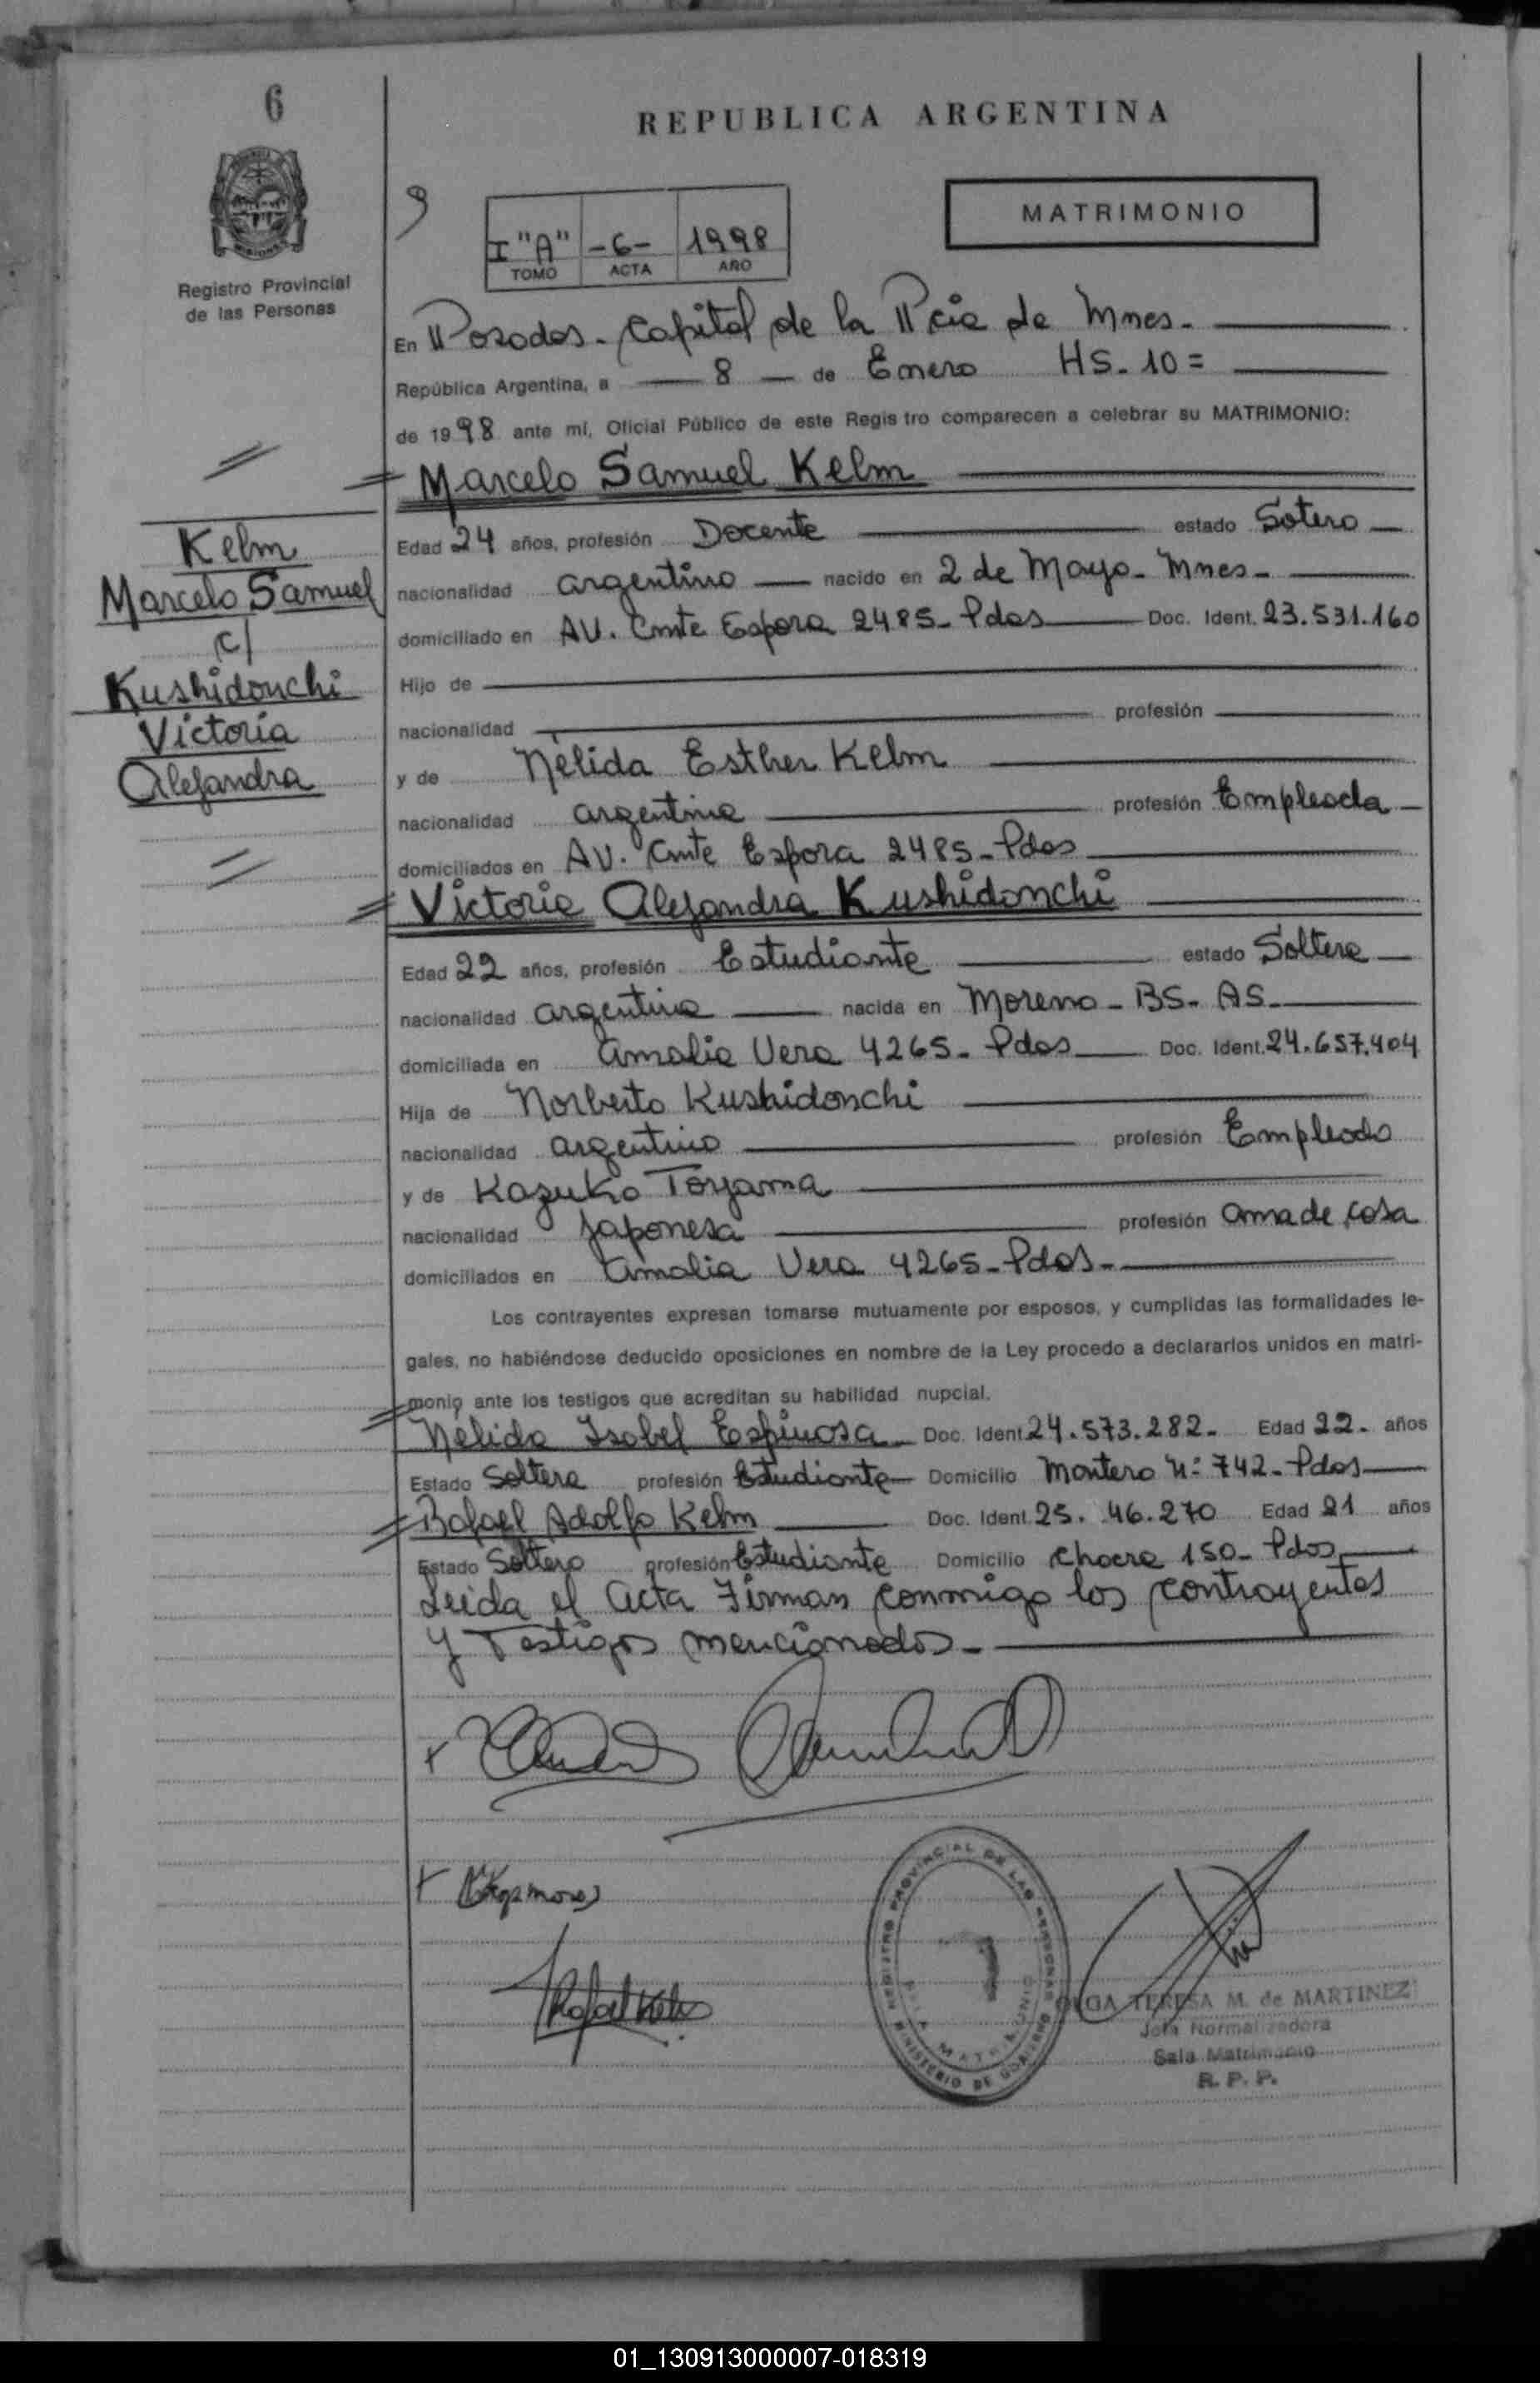 6
REPUBLICA ARGENTINA
9
I "A" -6- 1998
TOMO ACTA AÑO
MATRIMONIO
Registro Provincial
de las Personas
En Posadas - Capital de la Pcia de Mnes.
República Argentina, a 8 de Enero HS. 10=
de 1998 ante mí, Oficial Público de este Registro comparecen a celebrar su MATRIMONIO:
Marcelo Samuel Kelm
Kelm
Marcelo Samuel
c/
Kushidonchi
Victoria
Alejandra
Edad 24 años, profesión Docente estado Sotero
nacionalidad argentino nacido en 2 de Mayo - Mnes -
domiciliado en AV. Cmte Espora 2485 - Pdas Doc. Ident. 23.531.160
Hijo de
nacionalidad profesión
y de Nélida Esther Kelm
nacionalidad argentina profesión Empleada
domiciliados en AV. Cmte Espora 2485 - Pdas
Victoria Alejandra Kushidonchi
Edad 22 años, profesión Estudiante estado Soltera
nacionalidad argentina nacida en Moreno - BS. AS.
domiciliada en Amalia Vera 4265 - Pdas Doc. Ident. 24.657.404
Hija de Norberto Kushidonchi
nacionalidad argentino profesión Empleado
y de Kazuko Toyama
nacionalidad Japonesa profesión ama de casa
domiciliados en Amalia Vera 4265 - Pdas -
Los contrayentes expresan tomarse mutuamente por esposos, y cumplidas las formalidades le-
gales, no habiéndose deducido oposiciones en nombre de la Ley procedo a declararlos unidos en matri-
monio ante los testigos que acreditan su habilidad nupcial.
Nélida Isabel Espinosa Doc. Ident 24.573.282 - Edad 22 - años
Estado Soltera profesión Estudiante Domicilio Montero N: 742 - Pdas
Rafael Adolfo Kelm Doc. Ident. 25. 46.270 Edad 21 años
Estado Soltero profesión Estudiante Domicilio Chacra 150 - Pdas
Leida el Acta Firman conmigo los contrayentes
y Testigos mencionados -
REGISTRO PROVINCIAL DE LAS PERSONAS
SALA MATRIMONIO
MINISTERIO DE GOBIERNO
1
OLGA TERESA M. de MARTINEZ
Jefa Normalizadora
Sala Matrimonio
R. P. P.
01_130913000007-018319